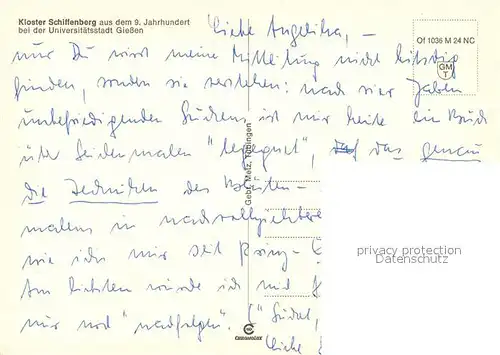 Kloster Schiffenberg aus dem 9. Jahrhundert
bei der Universitätsstadt Gießen
Liebe Angelika, –
nur Du wirst meine Mitteilung nicht
finden, sondern sie verstehen: nach vier Jahren
unbefriedigenden Suchens ist mir heute ein Buch
über Seidenmalen "begegnet", das genau
die Techniken des Blüten-
malens in
wie ich mir seit
Am liebsten würde ich
nur noch "nachfolgen". (
Liebe
Of 1036 M 24 NC
GM
T
Gebr. Metz, Tübingen
privacy protection
Datenschutz